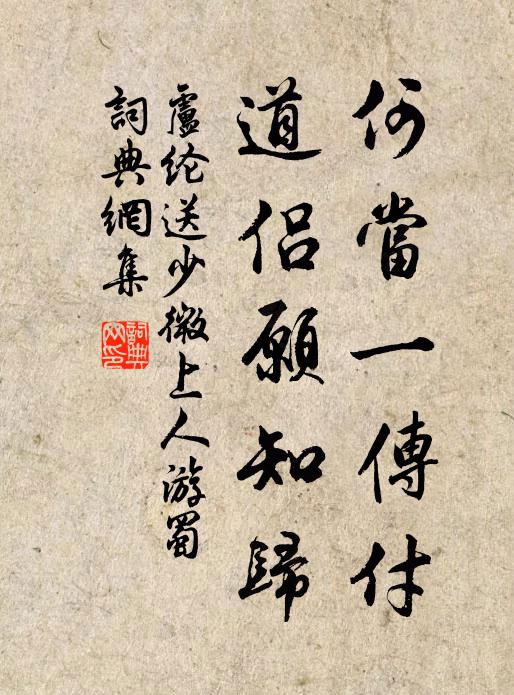 何當一傳付
道侶願知歸
盧纶送少微上人游蜀
詞典網集
詞典网印